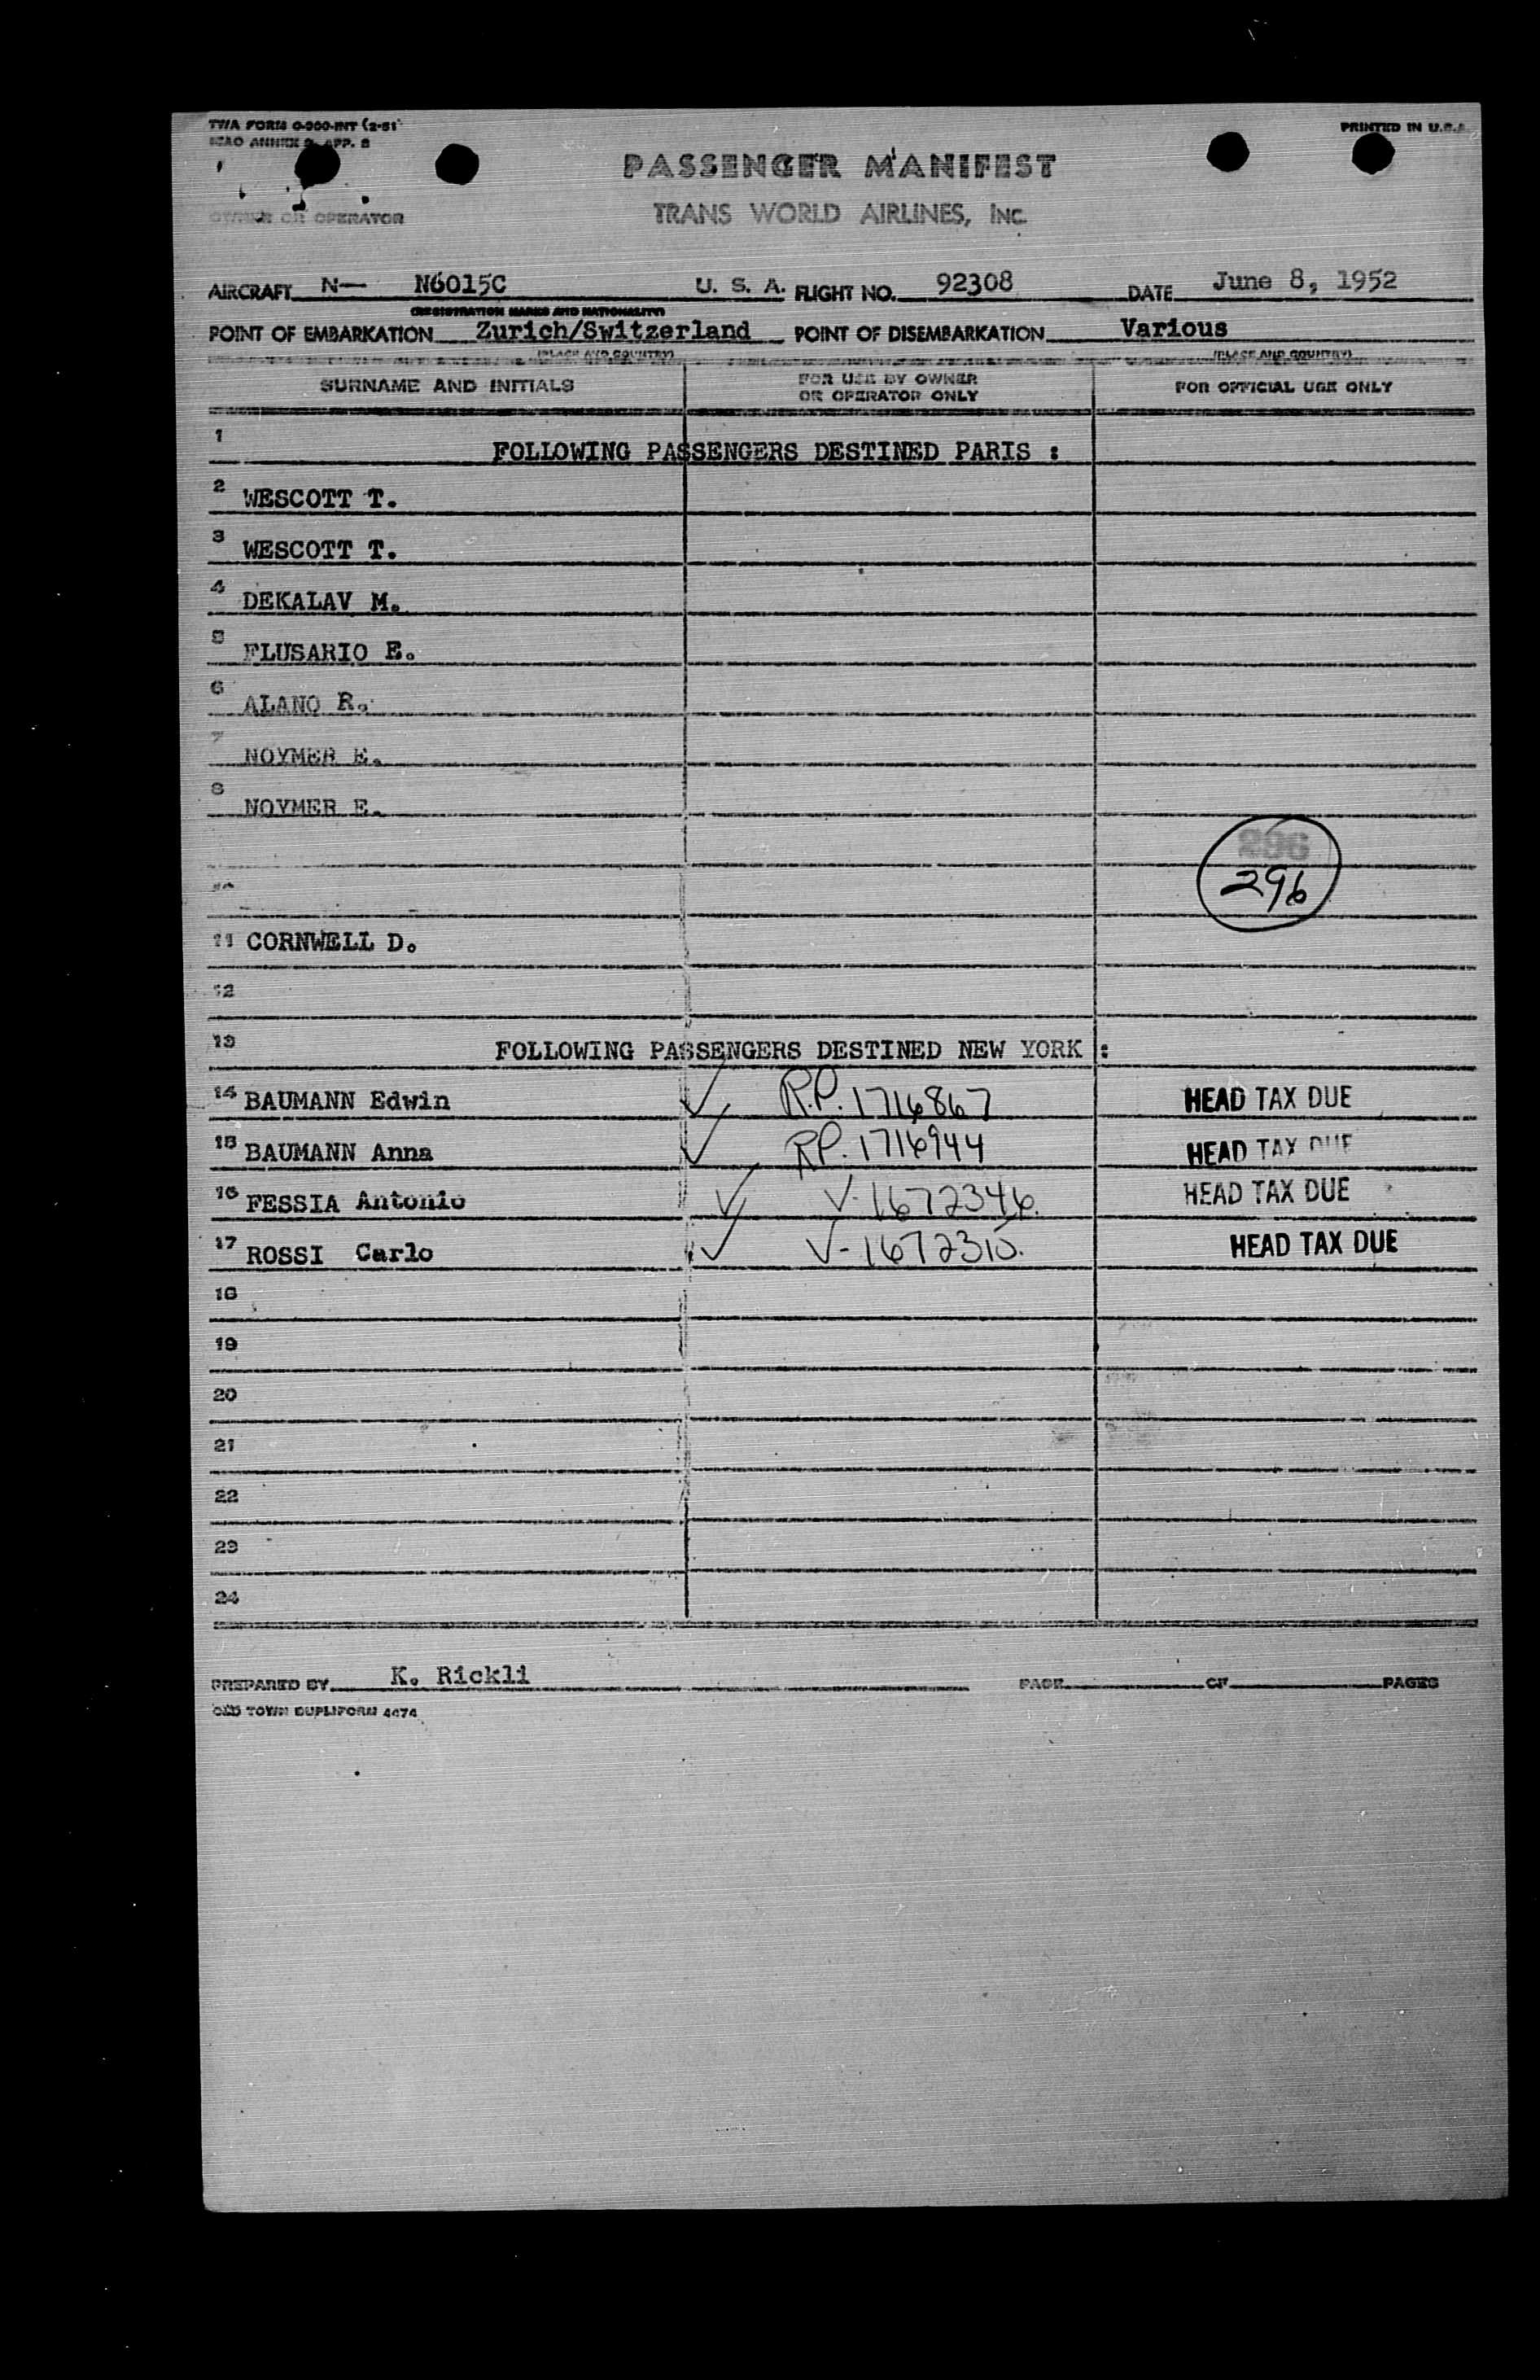 TWA FORM O-900-INT (2-51
ICAO ANNEX 9, APP. 2
PRINTED IN U.S.A.
PASSENGER MANIFEST
OWNER OR OPERATOR
TRANS WORLD AIRLINES, INC.
AIRCRAFT N— N6015C U. S. A. FLIGHT NO. 92308 DATE June 8, 1952
(REGISTRATION MARKS AND NATIONALITY)
POINT OF EMBARKATION Zurich/Switzerland POINT OF DISEMBARKATION Various
(PLACE AND COUNTRY) (PLACE AND COUNTRY)
SURNAME AND INITIALS FOR USE BY OWNER OR OPERATOR ONLY FOR OFFICIAL USE ONLY
1 FOLLOWING PASSENGERS DESTINED PARIS :
2 WESCOTT T.
3 WESCOTT T.
4 DEKALAV M.
5 FLUSARIO E.
6 ALANO R.
7 NOYMER E.
8 NOYMER E.
296
296
11 CORNWELL D.
12
13 FOLLOWING PASSENGERS DESTINED NEW YORK :
14 BAUMANN Edwin ✓ R.P. 1716867 HEAD TAX DUE
15 BAUMANN Anna ✓ RP. 1716944 HEAD TAX DUE
16 FESSIA Antonio ✓ V-1672346. HEAD TAX DUE
17 ROSSI Carlo ✓ V-1672310. HEAD TAX DUE
18
19
20
21
22
23
24
PREPARED BY K. Rickli PAGE OF PAGES
OLD TOWN DUPLIFORM 4474